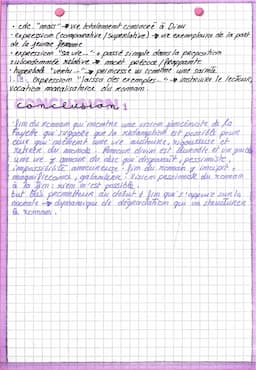 · cdc. "mais" → vie totalement consacrée à Dieu
· expression (comparative / superlative) → vie exemplaire de la part
de la jeune femme
· expression "sa vie..." + passé simple dans la proposition
subordonnée relative → mort précoce / frappante
· hyperbole "vertu..." → princesse vu comme une sainte
expression "laissa des exemples..." → instruire le lecteur,
vocation moralisatrice du roman.
Conclusion:
fin du roman qui montre une vision janséniste de La
Fayette qui suppose que la rédemption est possible pour
ceux qui mènent une vie austère, rigoureuse et
retirée du monde. Amour divin est durable et on guide
une vie ≠ amour du duc qui disparaît, pessimiste,
impossibilité amoureuse. fin du roman ≠ incipit,
magnificence, galanterie. Vision pessimiste du roman
à la fin: rien n'est possible.
but très prometteur du début ≠ fin qui s'appuie sur la
morale → dynamique de dégradation qui va structurer
le roman.